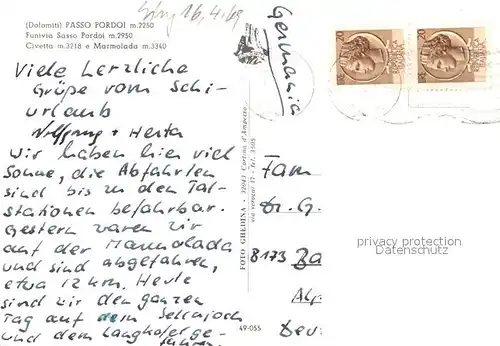 (Dolomiti) PASSO PORDOI m.2250
Funivia Sasso Pordoi m.2950
Civetta m.3218 e Marmolada m.3340
16.4.69
Viele herzliche
Grüße vom Schi-
urlaub
Wolfgang + Herta
Wir haben hier viel
Sonne, die Abfahrten
sind bis zu den Tal-
stationen befahrbar.
Gestern waren wir
auf der Marmolada
und sind abgefahren,
etwa 12 km. Heute
sind wir den ganzen
Tag auf dem Sellajoch
und dem Langkofel ge-
fahren.
FOTO GHEDINA - 32043 Cortina d'Ampezzo
49-055
Germania
20
20
Fam
Dr. G.
8173 Ba
Alp
Deu
privacy protection
Datenschutz